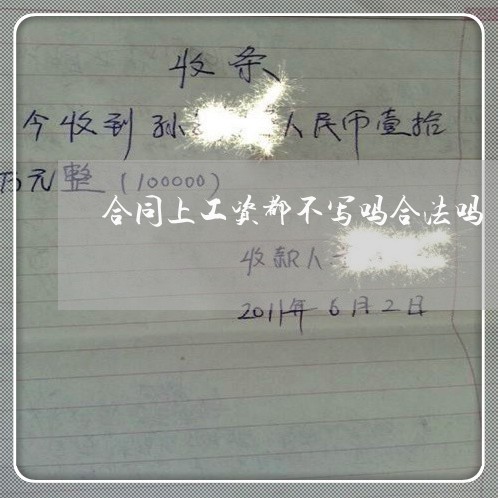 收条
今收到孙 人民币壹拾
万元整(100000)
合同上工资都不写吗合法吗
收款人
2011年6月2日